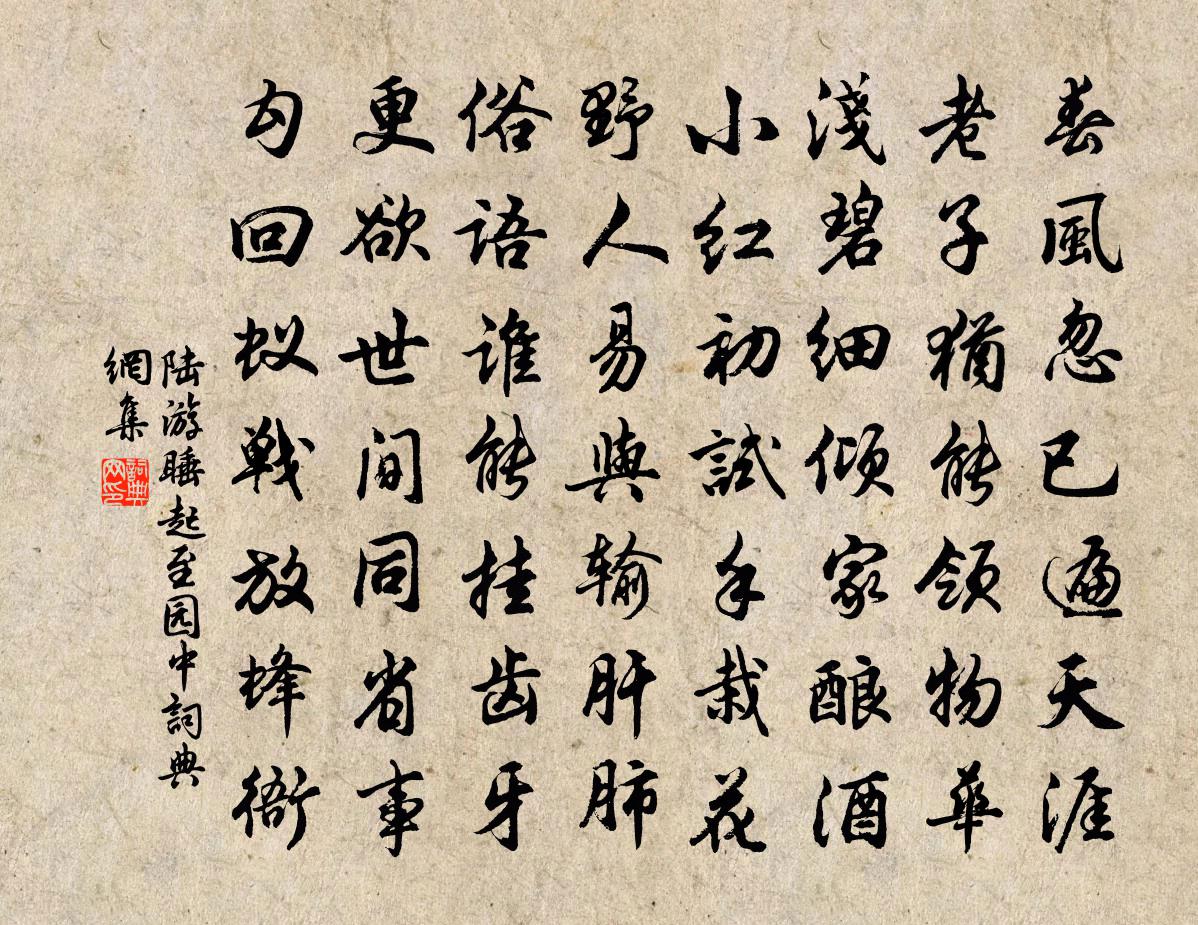 春風忽已遍天涯
老子猶能領物華
淺碧細傾家釀酒
小红初試手栽花
野人易與輸肝肺
俗語谁能挂齿牙
更欲世间同省事
勾回蚁戦放蜂衙
陆游睡起至园中詞典
網集
詞典
网印